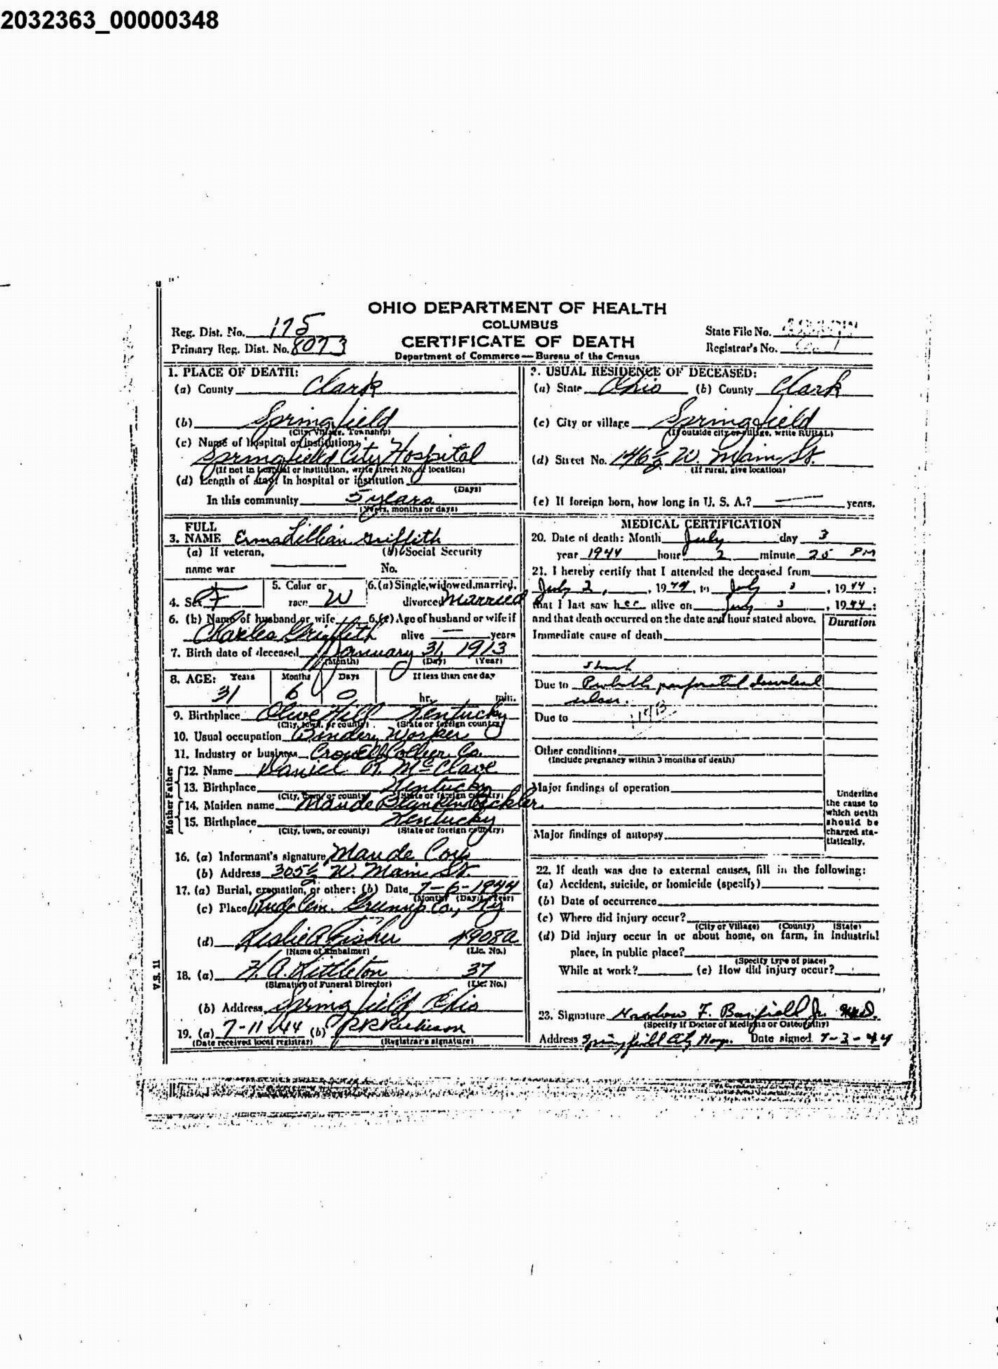 2032363_00000348
OHIO DEPARTMENT OF HEALTH
COLUMBUS
CERTIFICATE OF DEATH
Department of Commerce—Bureau of the Census
Reg. Dist. No. 175
Primary Reg. Dist. No. 8073
State File No.
Registrar's No.
1. PLACE OF DEATH:
(a) County Clark
(b) Springfield
(City, Village, Township)
(c) Name of Hospital or institution
Springfield City Hospital
(If not in hospital or institution, write street No. or location)
(d) Length of stay: In hospital or institution
(Days)
In this community 5 years
(Years, months or days)
2. USUAL RESIDENCE OF DECEASED:
(a) State Ohio (b) County Clark
(c) City or village Springfield
(If outside city or village, write RURAL)
(d) Street No. 1461/2 W. Main St.
(If rural, give location)
(e) If foreign born, how long in U. S. A.? years.
3. FULL NAME Erma Lillian Griffith
(a) If veteran, name war
(b) Social Security No.
4. Sex F
5. Color or race W
6. (a) Single, widowed, married, divorced Married
6. (b) Name of husband or wife Charles Griffith
6. (c) Age of husband or wife if alive years
7. Birth date of deceased January 31, 1913
(Month) (Day) (Year)
8. AGE: Years Months Days If less than one day
31 6 0 hr. min.
9. Birthplace Olive Hill Kentucky
(City, town, or county) (State or foreign country)
10. Usual occupation Bindery Worker
11. Industry or business Crowell Collier Co.
Father
12. Name Daniel McClave
13. Birthplace Kentucky
(City, town, or county) (State or foreign country)
Mother
14. Maiden name Maude Blankenbeckler
15. Birthplace Kentucky
(City, town, or county) (State or foreign country)
16. (a) Informant's signature Maude Cox
(b) Address 3051/2 W. Main St.
17. (a) Burial, cremation, or other: (b) Date 7-6-1944
(Month) (Day) (Year)
(c) Place Cem. Greenup Co., Ky
(d) Leslie R Fisher 4908A
(Name of Embalmer) (Lic. No.)
18. (a) H. A. Littleton 37
(Signature of Funeral Director) (Lic. No.)
(b) Address Springfield, Ohio
19. (a) 7-11-44 (b)
(Date received local registrar) (Registrar's signature)
V.S. 11
MEDICAL CERTIFICATION
20. Date of death: Month July day 3
year 1944 hour 2 minute 25 PM
21. I hereby certify that I attended the deceased from
July 2, 1944, to July 3, 1944;
that I last saw her alive on July 3, 1944;
and that death occurred on the date and hour stated above.
Duration
Immediate cause of death
Shock
Due to Probable perforated duodenal
ulcer
Due to
Other conditions
(Include pregnancy within 3 months of death)
Major findings of operation
Major findings of autopsy
Underline the cause to which death should be charged statistically.
22. If death was due to external causes, fill in the following:
(a) Accident, suicide, or homicide (specify)
(b) Date of occurrence
(c) Where did injury occur?
(City or Village) (County) (State)
(d) Did injury occur in or about home, on farm, in industrial
place, in public place?
(Specify type of place)
While at work? (e) How did injury occur?
23. Signature F. Banfield Jr. M.D.
(Specify if Doctor of Medicine or Osteopathy)
Address Springfield City Hosp. Date signed 7-3-44